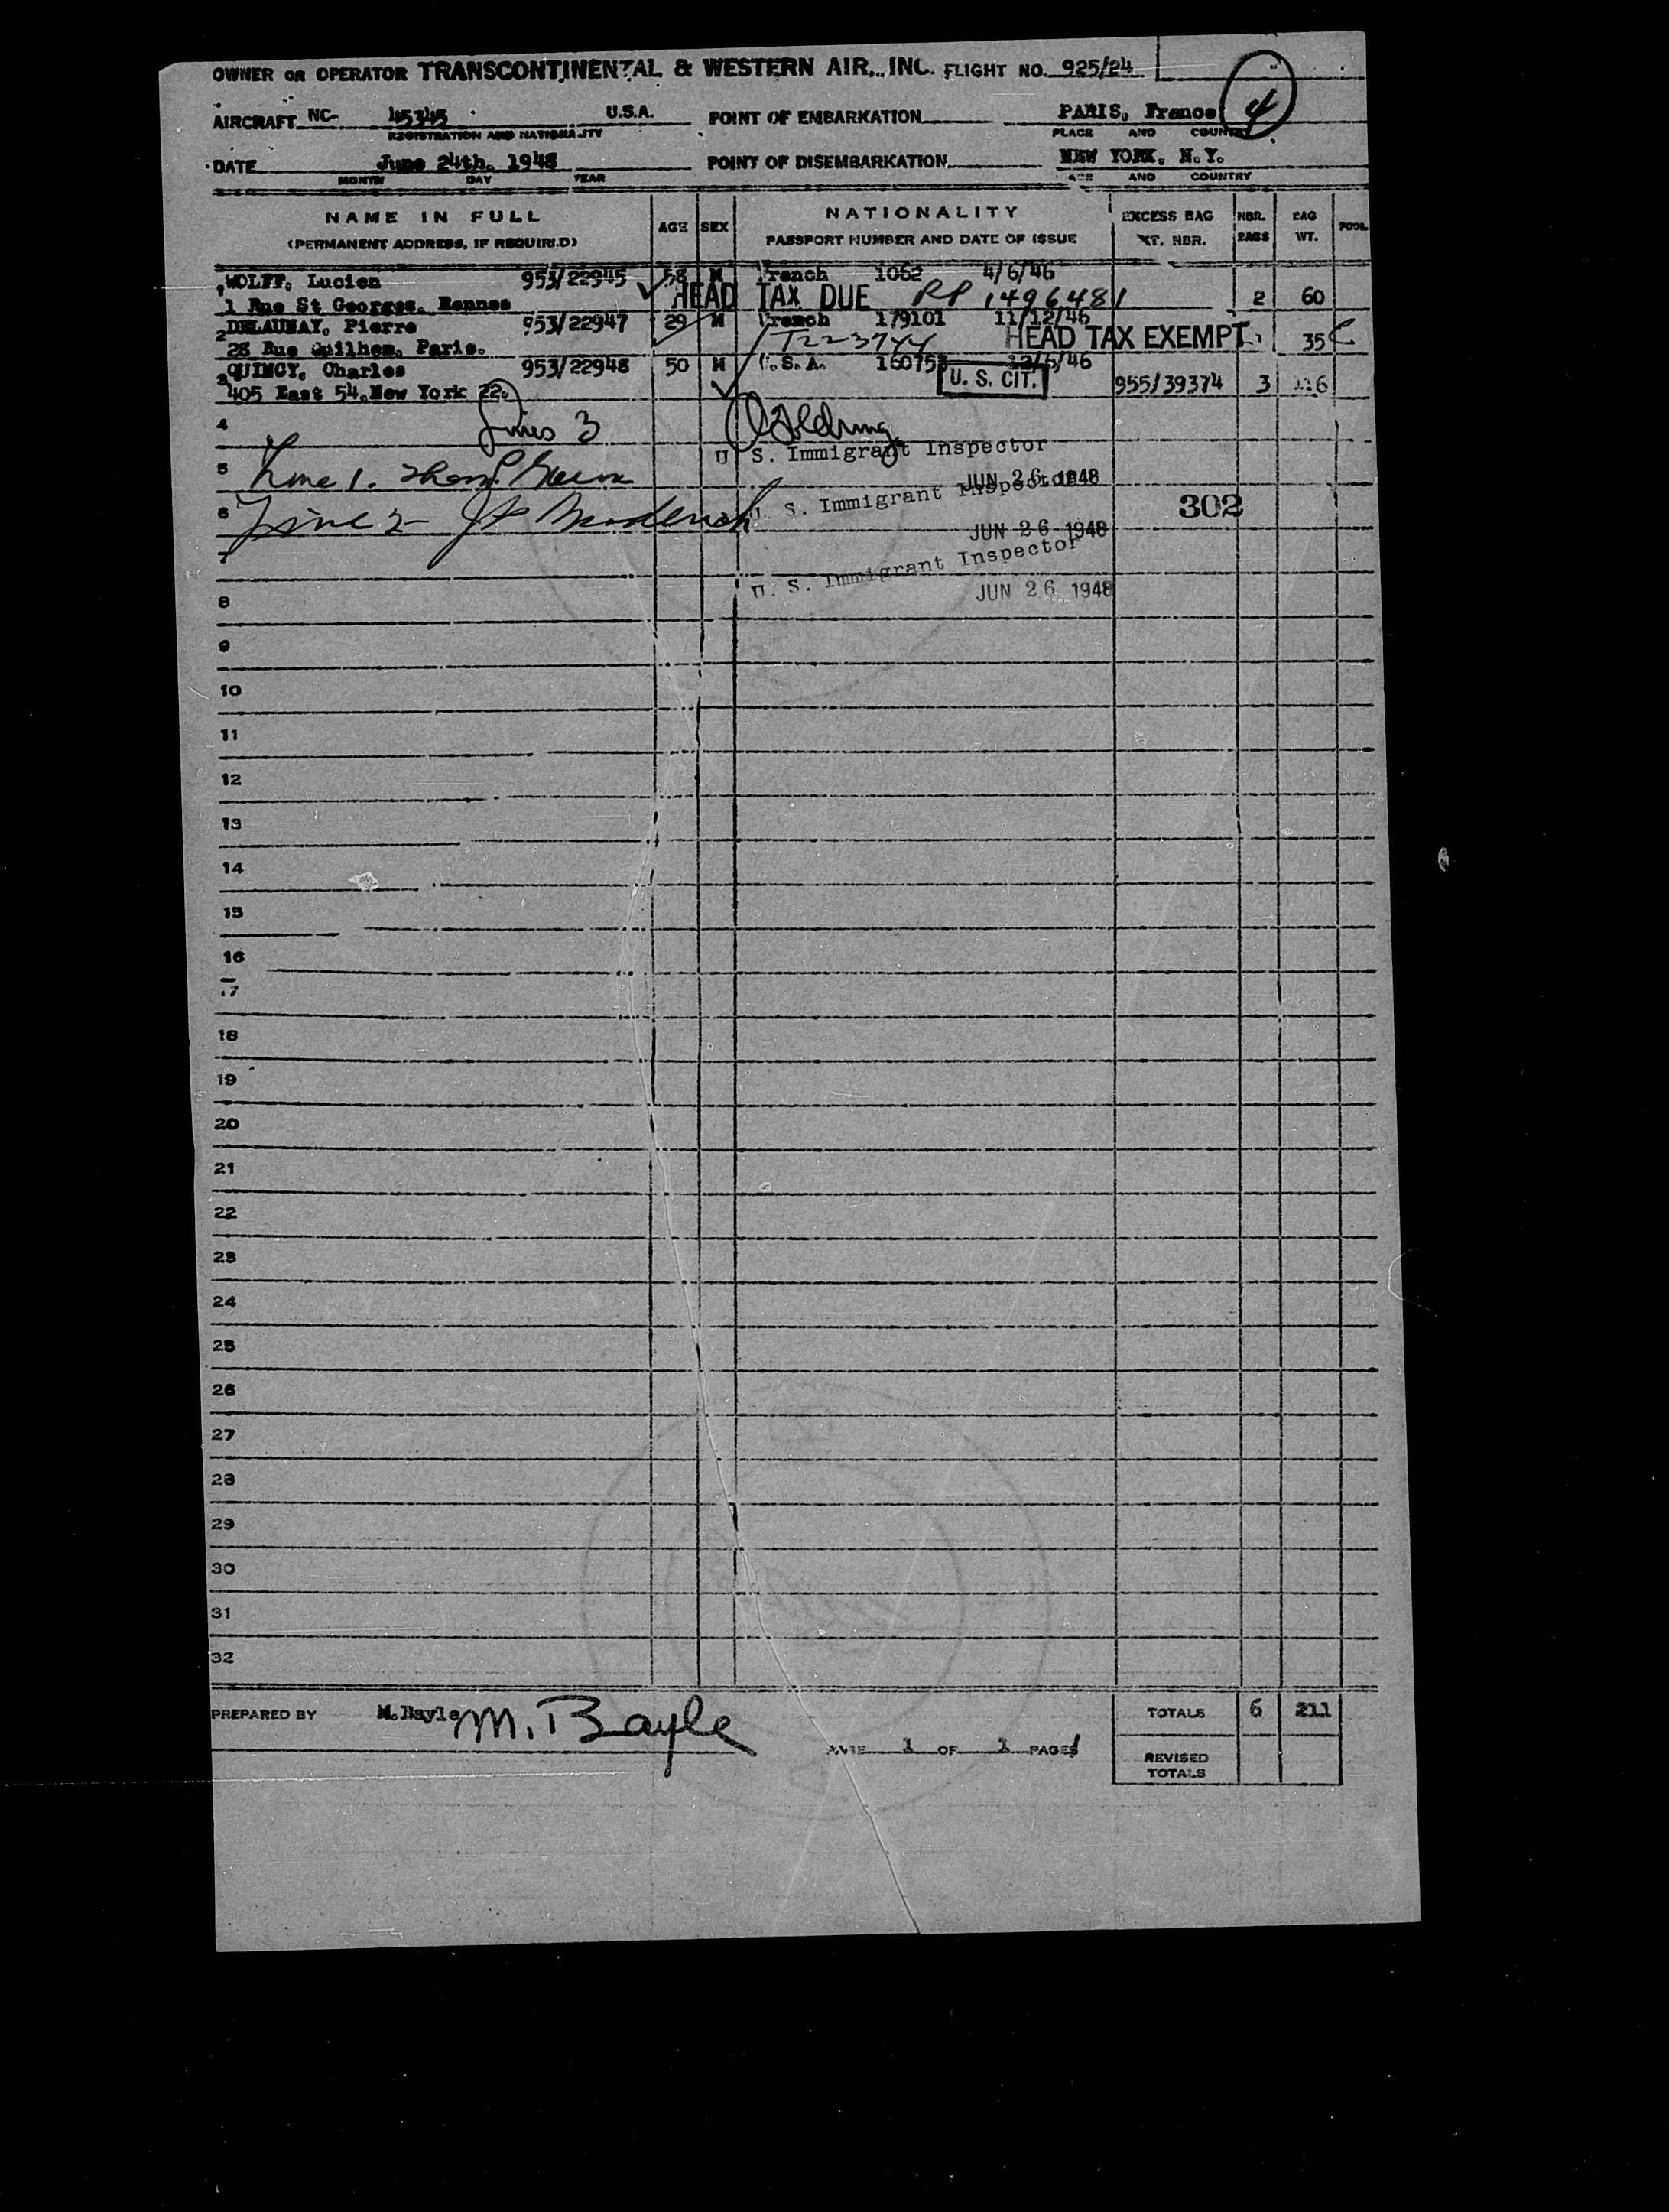 OWNER OR OPERATOR TRANSCONTINENTAL & WESTERN AIR, INC. FLIGHT NO. 925/24
4
AIRCRAFT NC- 45345 U.S.A. POINT OF EMBARKATION PARIS, France
REGISTRATION AND NATIONALITY PLACE AND COUNTRY
DATE June 24th. 1948 POINT OF DISEMBARKATION NEW YORK, N.Y.
MONTH DAY YEAR AND COUNTRY
NAME IN FULL AGE SEX NATIONALITY EXCESS BAG NBR. BAG POOL
(PERMANENT ADDRESS, IF REQUIRED) PASSPORT NUMBER AND DATE OF ISSUE KT. NBR. BAGS WT.
1 WOLFF, Lucien 953/22945 58 M French 1062 4/6/46
1 Rue St Georges, Rennes HEAD TAX DUE RP 1496481 2 60
2 DELAUNAY, Pierre 953/22947 29 M French 179101 11/12/46
28 Rue Guilhem, Paris. T223744 HEAD TAX EXEMPT 1 35
3 QUINCY, Charles 953/22948 50 M U.S.A. 160753 12/5/46
405 East 54, New York 22. U. S. CIT. 955/39374 3 116
4 Lines 3
U S. Immigrant Inspector
5 Line 1. JUN 26 1948
U. S. Immigrant Inspector
6 Line 2- 302
JUN 26 1948
7
U. S. Immigrant Inspector
8 JUN 26 1948
9
10
11
12
13
14
15
16
17
18
19
20
21
22
23
24
25
26
27
28
29
30
31
32
PREPARED BY M. Bayle M. Bayle TOTALS 6 211
PAGE 1 OF 1 PAGES
REVISED
TOTALS